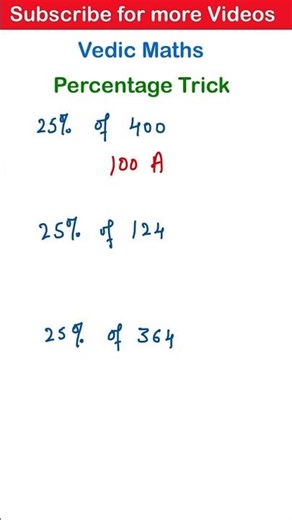 Subscribe for more Videos
Vedic Maths
Percentage Trick
25% of 400
100 A
25% of 124
25% of 364